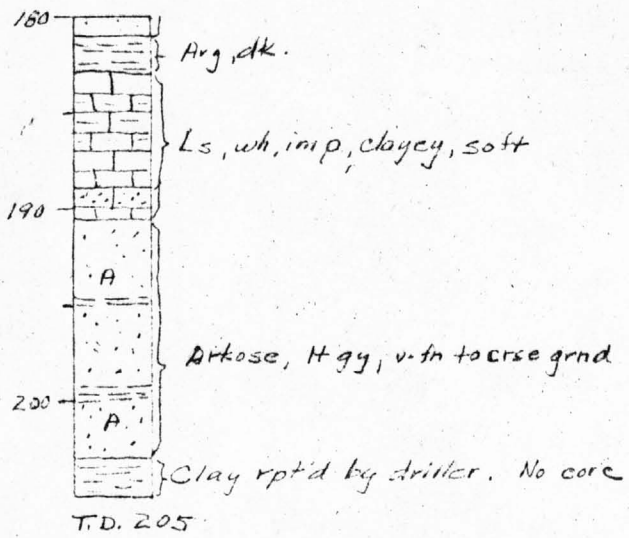 180
Arg, dk.
Ls, wh, imp, clayey, soft
190
A
Arkose, lt gy, v. fn to crse grnd
200
A
Clay rpt'd by driller. No core
T.D. 205